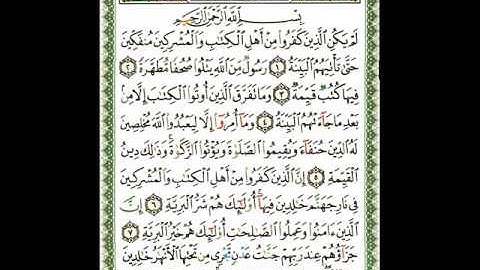 بِسْمِ ٱللَّهِ ٱلرَّحْمَٰنِ ٱلرَّحِيمِ
لَمْ يَكُنِ ٱلَّذِينَ كَفَرُوا۟ مِنْ أَهْلِ ٱلْكِتَٰبِ وَٱلْمُشْرِكِينَ مُنفَكِّينَ
حَتَّىٰ تَأْتِيَهُمُ ٱلْبَيِّنَةُ ١ رَسُولٌ مِّنَ ٱللَّهِ يَتْلُوا۟ صُحُفًا مُّطَهَّرَةً ٢
فِيهَا كُتُبٌ قَيِّمَةٌ ٣ وَمَا تَفَرَّقَ ٱلَّذِينَ أُوتُوا۟ ٱلْكِتَٰبَ إِلَّا مِنۢ
بَعْدِ مَا جَآءَتْهُمُ ٱلْبَيِّنَةُ ٤ وَمَآ أُمِرُوٓا۟ إِلَّا لِيَعْبُدُوا۟ ٱللَّهَ مُخْلِصِينَ
لَهُ ٱلدِّينَ حُنَفَآءَ وَيُقِيمُوا۟ ٱلصَّلَوٰةَ وَيُؤْتُوا۟ ٱلزَّكَوٰةَ وَذَٰلِكَ دِينُ
ٱلْقَيِّمَةِ ٥ إِنَّ ٱلَّذِينَ كَفَرُوا۟ مِنْ أَهْلِ ٱلْكِتَٰبِ وَٱلْمُشْرِكِينَ
فِى نَارِ جَهَنَّمَ خَٰلِدِينَ فِيهَآ أُو۟لَٰٓئِكَ هُمْ شَرُّ ٱلْبَرِيَّةِ ٦ إِنَّ
ٱلَّذِينَ ءَامَنُوا۟ وَعَمِلُوا۟ ٱلصَّٰلِحَٰتِ أُو۟لَٰٓئِكَ هُمْ خَيْرُ ٱلْبَرِيَّةِ ٧
جَزَآؤُهُمْ عِندَ رَبِّهِمْ جَنَّٰتُ عَدْنٍ تَجْرِى مِن تَحْتِهَا ٱلْأَنْهَٰرُ خَٰلِدِينَ